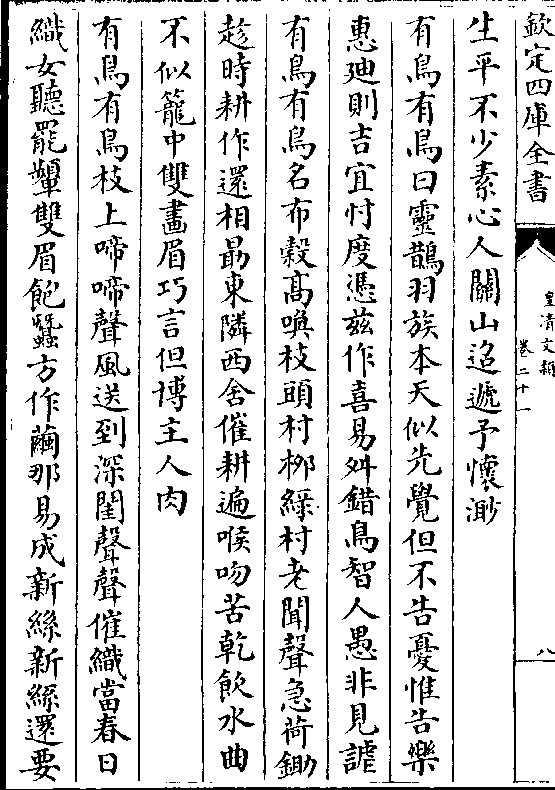 欽定四庫全書
皇清文穎
卷二十一
八
生平不少素心人關山迢遞予懷渺
有鳥有鳥曰靈鵲羽族本天似先覺但不告憂惟告樂
惠廸則吉宜忖度憑兹作喜易舛錯鳥智人愚非見謔
有鳥有鳥名布穀高喚枝頭村栁綠村老聞聲急荷鋤
趁時耕作還相勗東隣西舍催耕遍喉吻苦乾飲水曲
不似籠中雙畫眉巧言但博主人肉
有鳥有鳥枝上啼啼聲風送到深閨聲聲催織當春日
織女聽罷顰雙眉飽蠶方作繭那易成新絲新絲還要